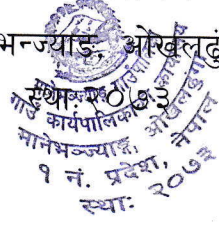 भन्ज्याङ, ओखलढुं
स्था: २०७३
गाउँ कार्यपालिका
मानेभञ्ज्याङ, ओखलढुंगा
१ नं. प्रदेश, नेपाल
स्था: २०७३